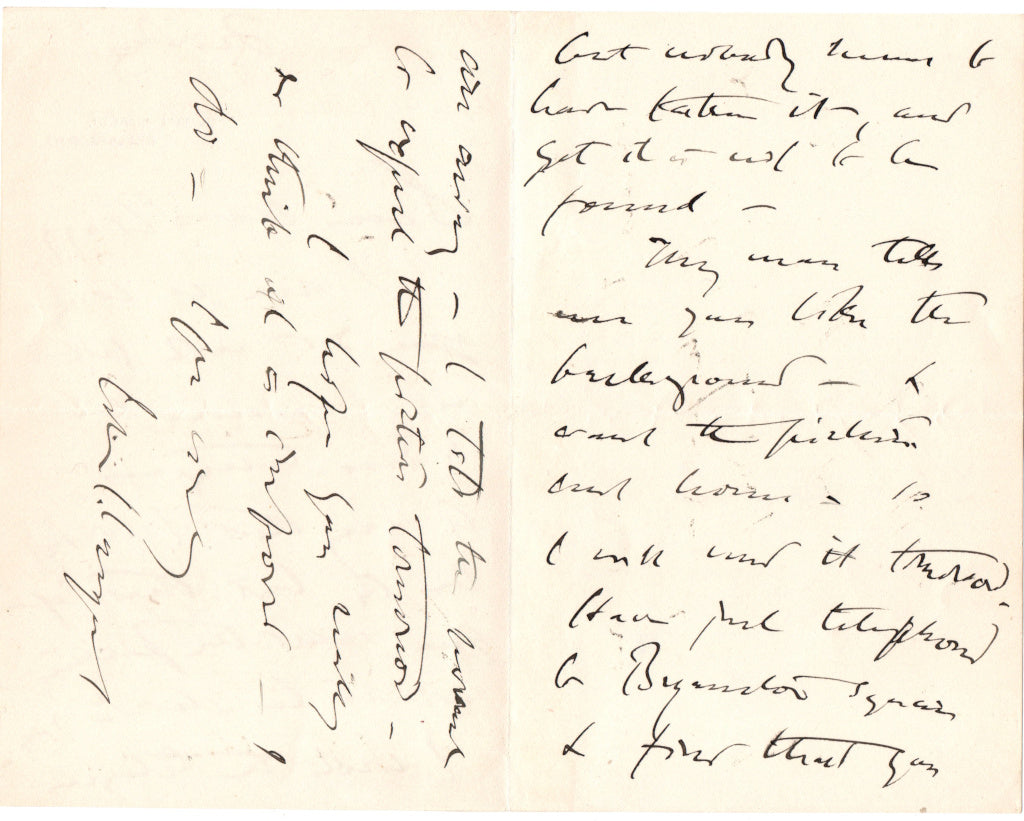 but nobody seems to
have taken it, and
yet it is not to be
found –
My man tells
me you like the
background – &
want the picture
sent home – so
I will send it tomorrow.
Have just telephoned
to Bryanston Square
& find that you
are away – I told the
to expect the picture tomorrow –
I hope you really
do think it is improved – I
do –
Yrs ever